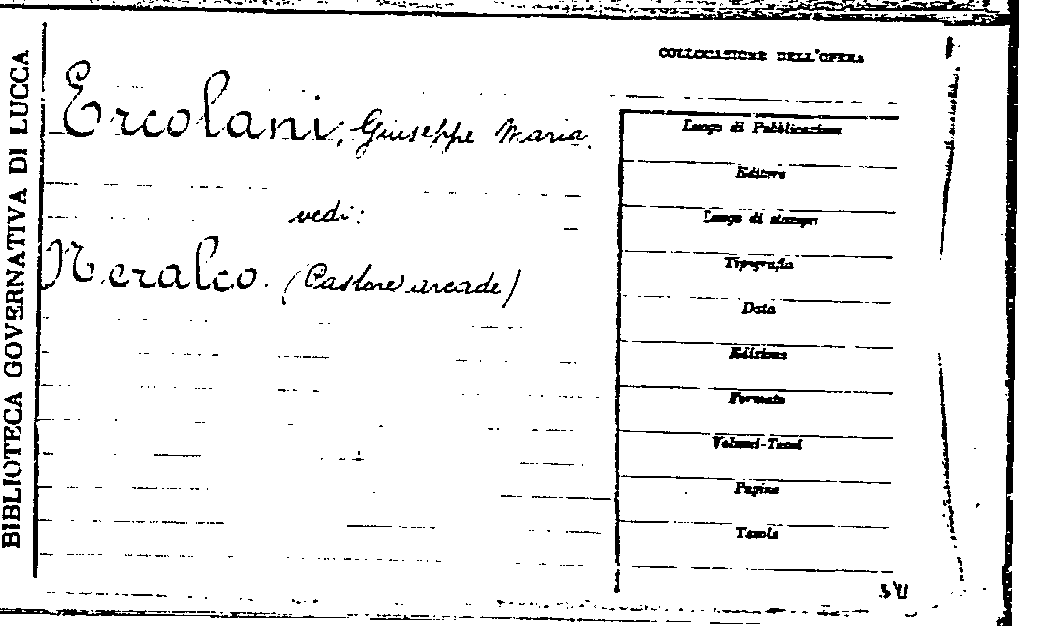 BIBLIOTECA GOVERNATIVA DI LUCCA
COLLOCAZIONE DELL'OPERA
Ercolani, Giuseppe Maria.
vedi:
Neralco. (Pastore arcade)
Luogo di Pubblicazione
Editore
Luogo di stampa
Tipografia
Data
Edizione
Formato
Volumi-Tomi
Pagine
Tavole